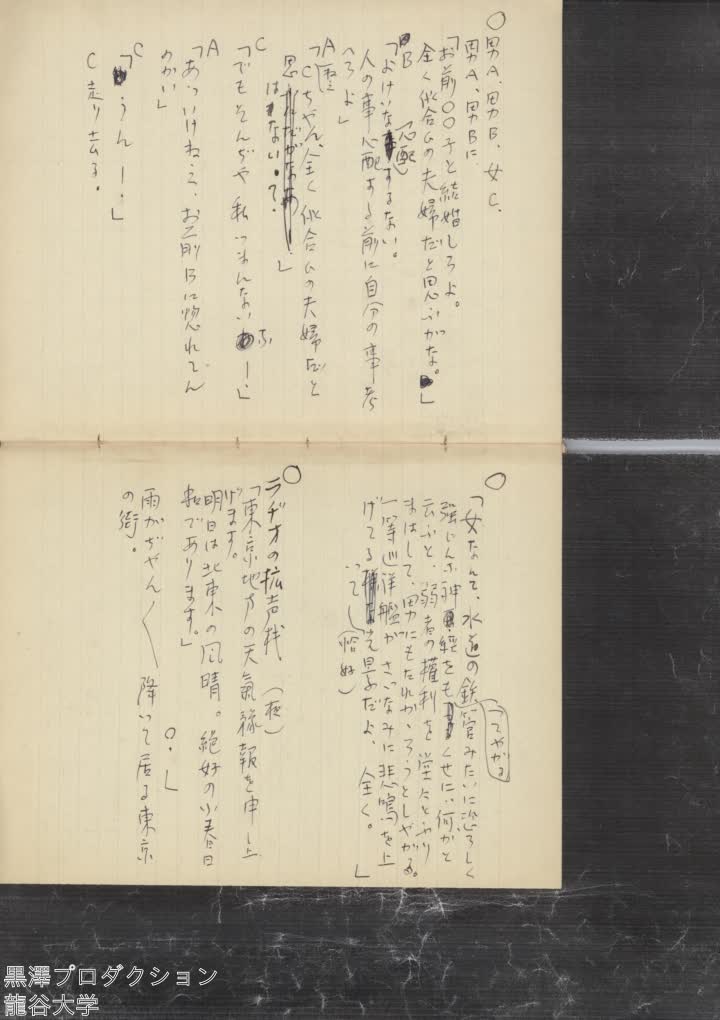 ○男A、男B、女C、
男A、男Bに
「お前○○子と結婚しろよ。
全く似合ひの夫婦だと思ふがな。」
B
「よけいな心配するない。
人の事心配する前に自分の事考
へろよ」
A
「Cちやん、全く似合ひの夫婦だと
思はない?」
C
「でもそんぢや私つまんないわー」
A
「あついけねえ、お前Bに惚れてん
のかい」
C
「うんー。」
C走り去る。
○
「女なんて、水道の鉄管みたいに恐ろしく
強じんな神経をもつてやがるくせに、何かと
云ふと、弱者の権利を
まはして、男にもたれかゝらうとしやがる。
一等巡洋艦がさゞなみに悲鳴を上
げてる恰好だよ、全く。」
○
ラヂオの拡声機、(夜)
「東京地方の天気豫報を申上
げます。
明日は北東の風晴。絶好の小春日
和であります。」
○。」
雨がぢやん〱降つて居る東京
の街。
黒澤プロダクション
龍谷大学